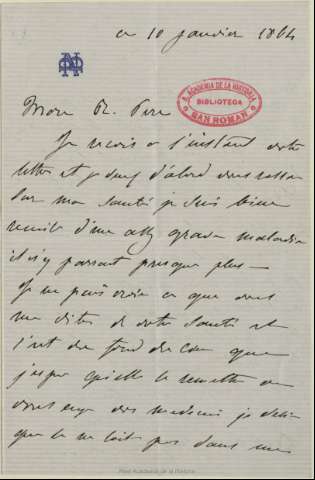 ce 10 janvier 1864
R. ACADEMIA DE LA HISTORIA
BIBLIOTECA
SAN ROMAN
Mon R. Pere
Je reçois a l'instant votre
lettre et je d'abord vous
sur ma santé je suis bien
remise d'une assez grave maladie
il n'y parait presque plus —
Je ne puis croire ce que vous
me dites de votre santé et
c'est du fond du cœur que
j'espere qu'elle se remettra
vous des medecins je
que ce ne soit pas dans une
Real Academia de la Historia